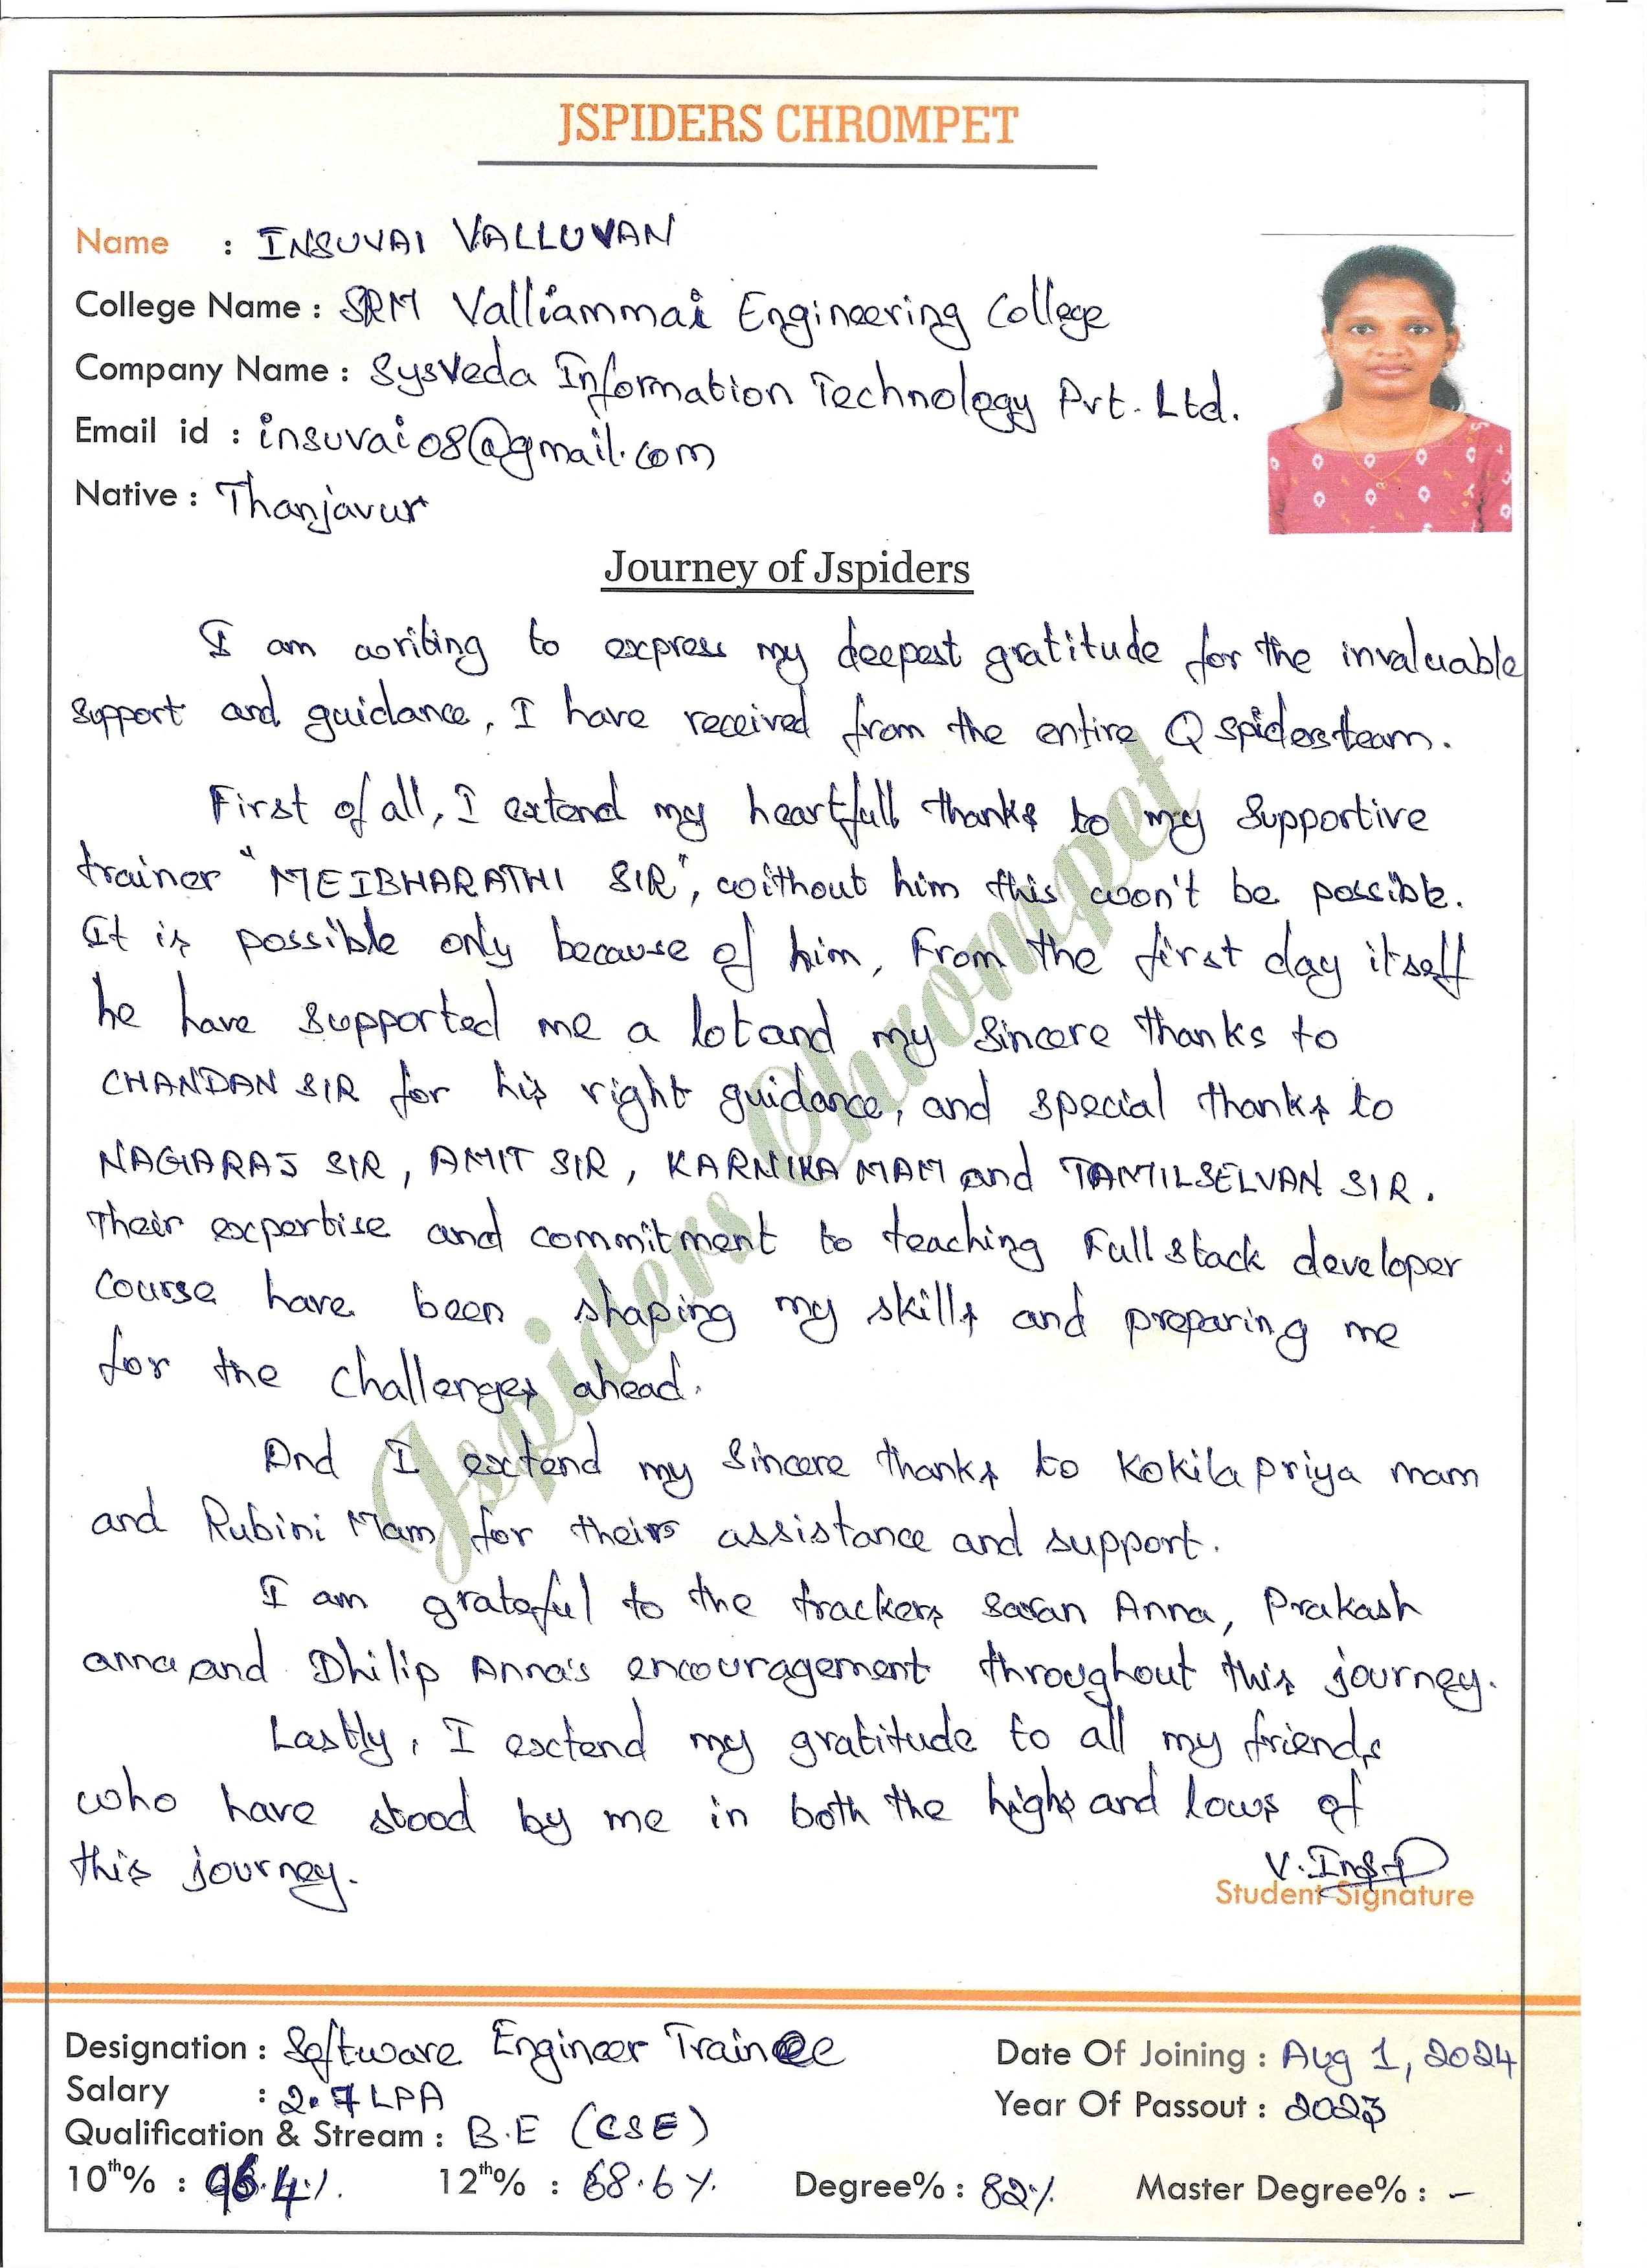 JSPIDERS CHROMPET
Name : INSUVAI VALLUVAN
College Name : SRM Valliammai Engineering College
Company Name : SysVeda Information Technology Pvt. Ltd.
Email id : insuvai08@gmail.com
Native : Thanjavur
Journey of Jspiders
I am writing to express my deepest gratitude for the invaluable
support and guidance, I have received from the entire Q spiders team.
First of all, I extend my heartfull thanks to my supportive
trainer "MEIBHARATHI SIR", without him this won't be possible.
It is possible only because of him, From the first day itself
he have supported me a lot and my sincere thanks to
CHANDAN SIR for his right guidance, and special thanks to
NAGARAJ SIR, AMIT SIR, KARNIKA MAM and TAMILSELVAN SIR.
Their expertise and commitment to teaching Full stack developer
course have been shaping my skills and preparing me
for the challenges ahead.
And I extend my sincere thanks to Kokila priya mam
and Rubini Mam for their assistance and support.
I am grateful to the trackers Saran Anna, Prakash
anna and Dhilip Anna's encouragement throughout this journey.
Lastly, I extend my gratitude to all my friends
who have stood by me in both the highs and lows of
this journey.
Student Signature
Jspiders Chrompet
Designation : Software Engineer Trainee
Date Of Joining : Aug 1, 2024
Salary : 2.7 LPA
Year Of Passout : 2023
Qualification & Stream : B.E (CSE)
10th% : 96.4%. 12th% : 68.6%. Degree% : 82% Master Degree% : -